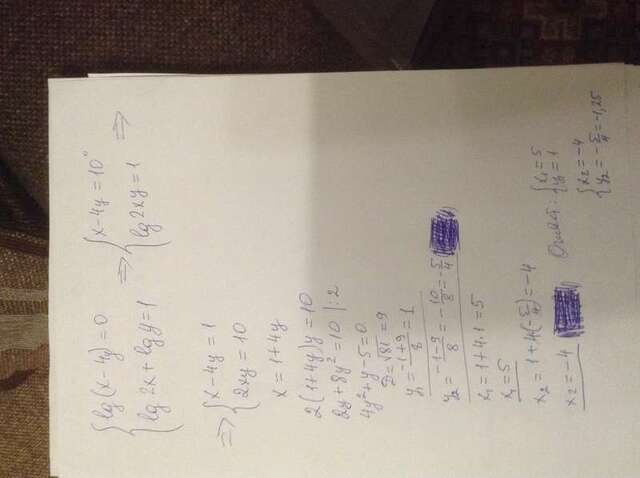 {lg(x-4y)=0 {x-4y=10⁰
{lg 2x+lg y=1 ⇒ {lg 2xy=1 ⇒
⇒ {x-4y=1
{2xy=10
x=1+4y
2(1+4y)y=10
2y+8y²=10 |:2
4y²+y-5=0
D=√81=9
y₁=(-1+9)/8=1
y₂=(-1-9)/8=-10/8=-5/4
x₁=1+4·1=5
x₁=5
x₂=1+4(-5/4)=-4
x₂=-4
Ответ: {x₁=5
{y₁=1
{x₂=-4
{y₂=-5/4=-1,25